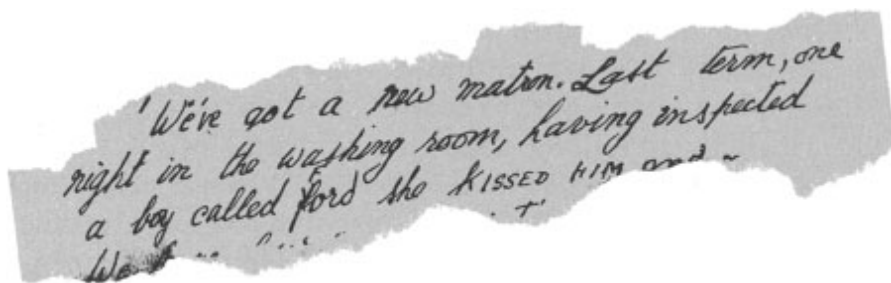 'We've got a new matron. Last term, one
right in the washing room, having inspected
a boy called Ford she KISSED HIM and
We